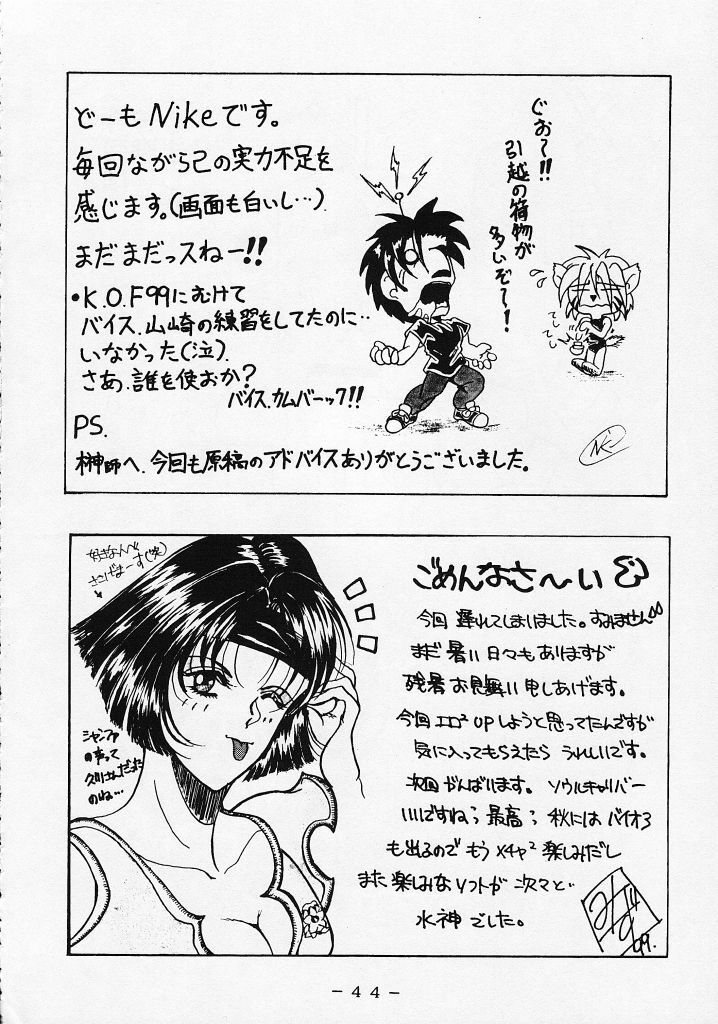 どーもNikeです。
毎回ながら己の実力不足を
感じます。(画面も白いし…)
まだまだっスねー!!
・K.O.F99にむけて
バイス、山崎の練習をしてたのに…
いなかった(泣)。
さあ、誰を使おか?
バイス、カムバーック!!
PS.
榊師へ、今回も原稿のアドバイスありがとうございました。
ぐお〜!!
引越の荷物が
多いぞ〜!
てい
てい
好きなんで
ささげまーす(笑)
シャンファ
の声って
久川さんだった
のね…
ごめんなさ〜い
今回遅れてしまいました。すみません
まだ暑い日々もありますが
残暑お見舞い申しあげます。
今回エロ²UPしようと思ってたんですが
気に入ってもらえたら うれしいです。
次回がんばります。 ソウルキャリバー
いいですねぅ 最高ぅ 秋にはバイオ3
も出るので もうメチャ²楽しみだし
また楽しみなソフトが 次々と
水神でした。
みず
99.
- 44 -